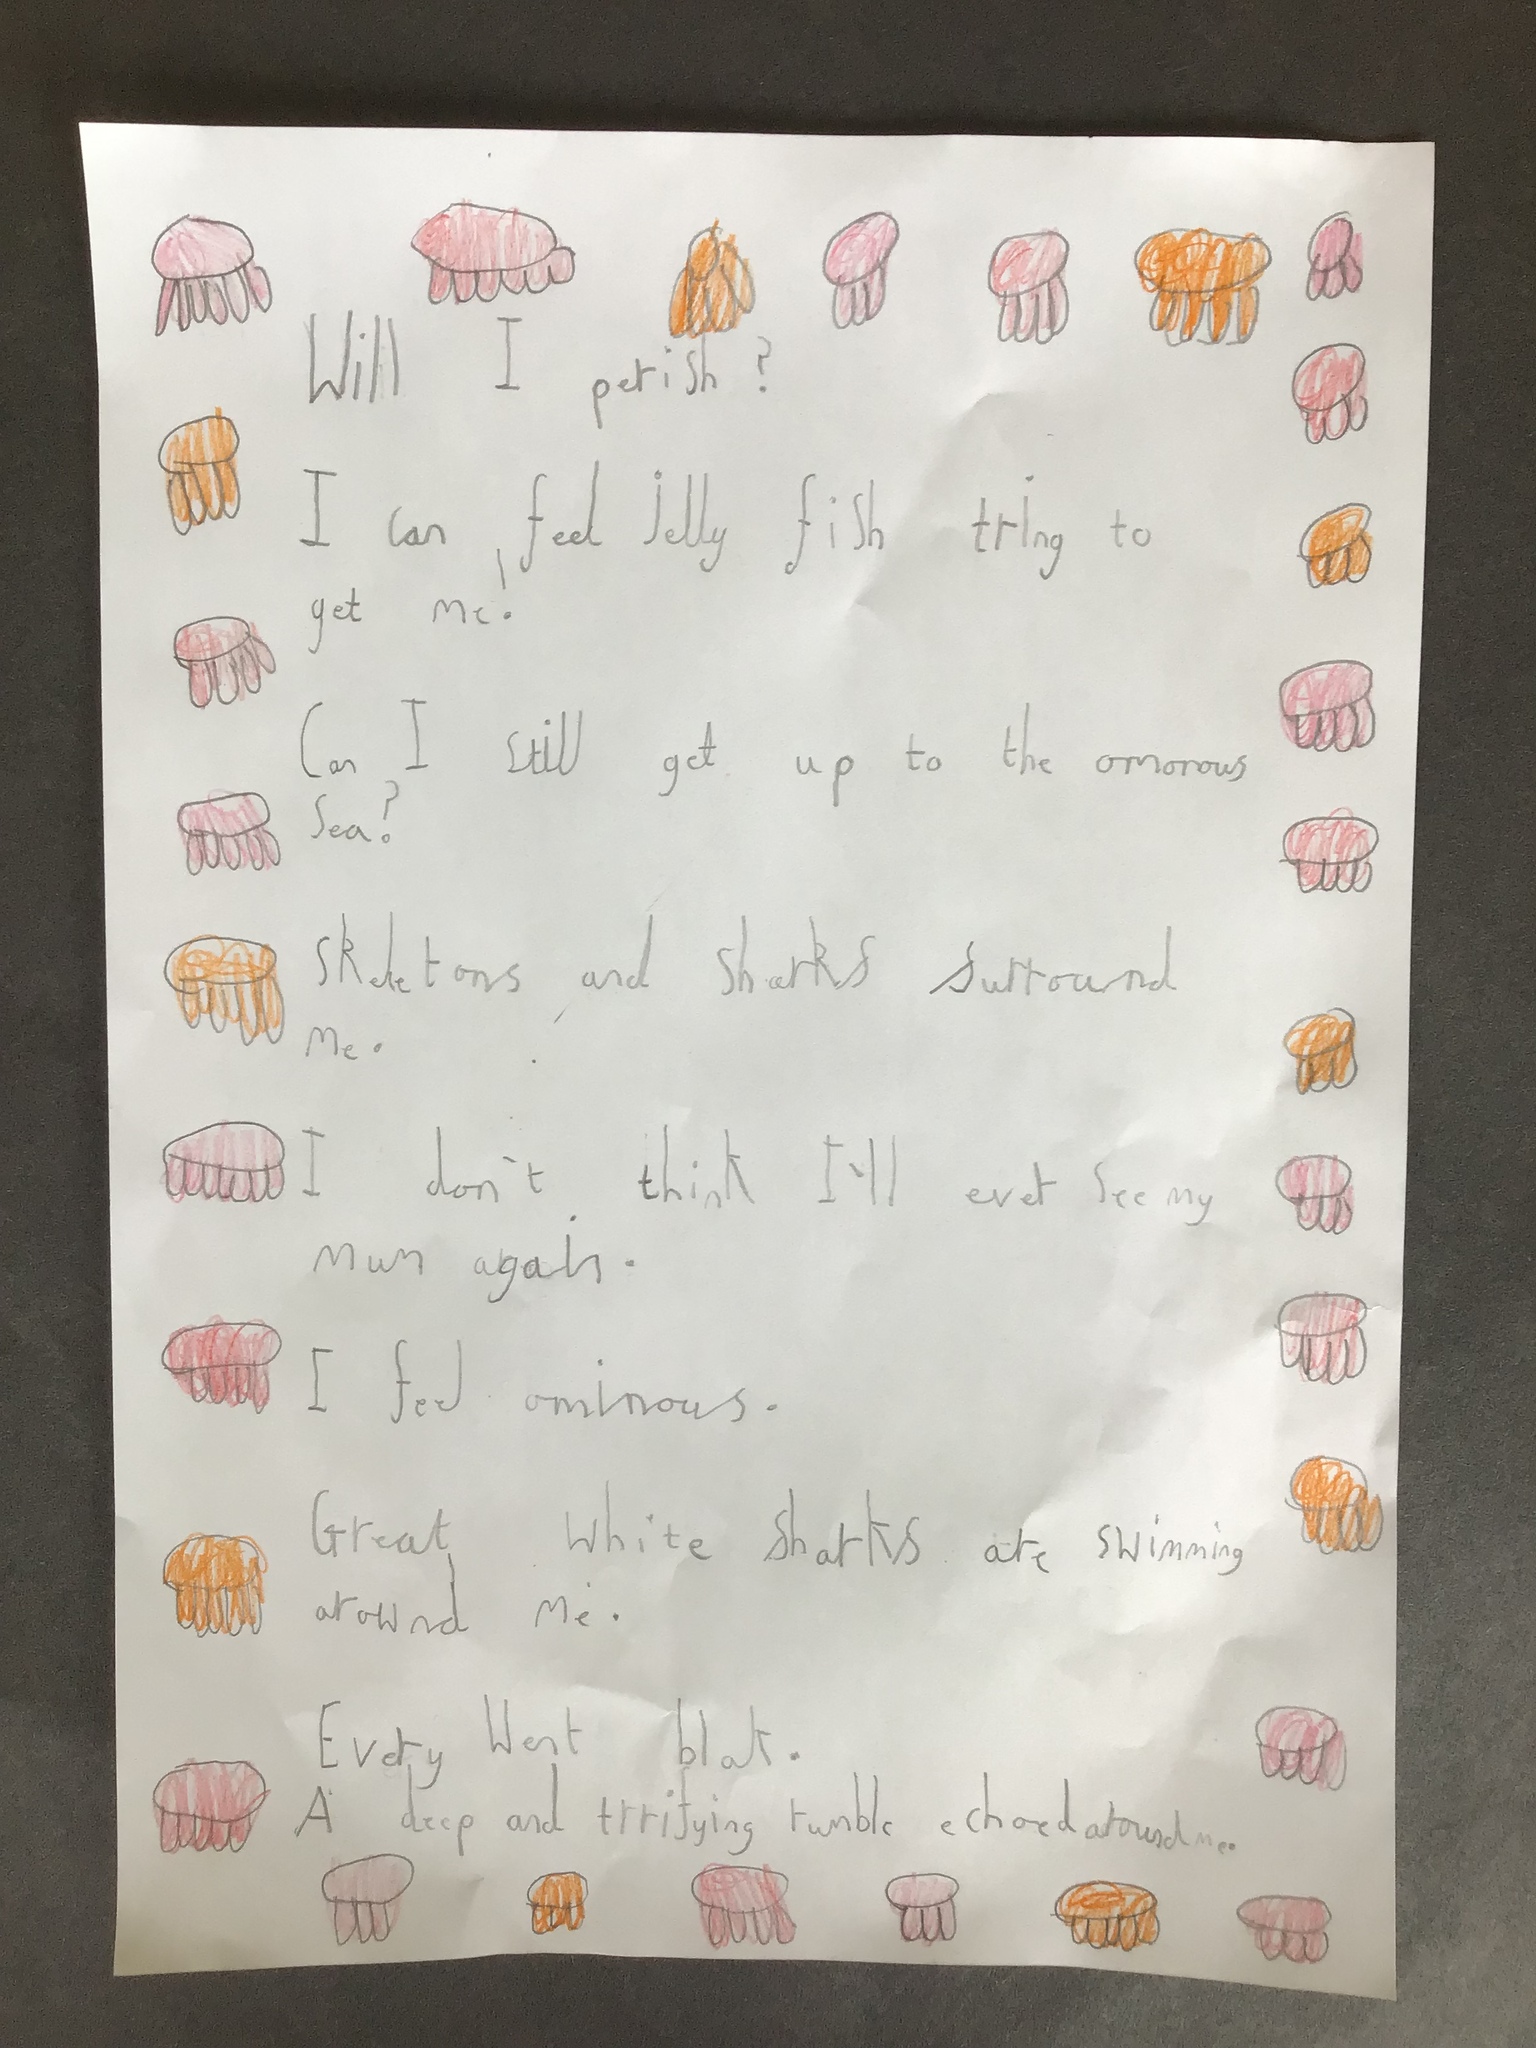 Will I perish?
I can feel jelly fish tring to
get me!
Can I still get up to the omorous
sea?
Skeletons and sharks surround
me.
I don't think I'll ever see my
mum again.
I feel ominous.
Great white sharks are swimming
arownd me.
Every went blak.
A deep and trrifying rumble echoed around me.